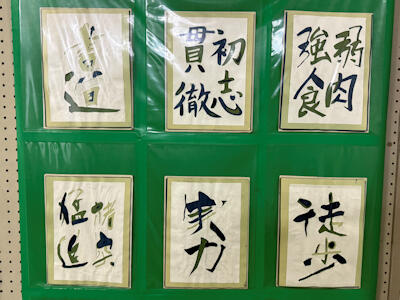 書道
初志
貫徹
弱肉
強食
猪突
猛進
実力
徒歩